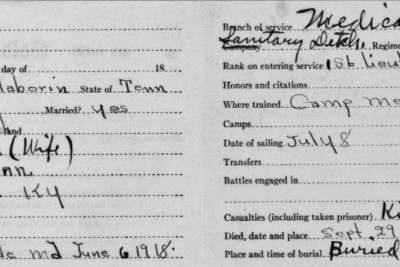 day of 18
State of Tenn
Married? yes
(Wife)
Ky
Md June 6. 1918.
Branch of service Medica
Company Sanitary Detch. Regim
Rank on entering service 1st Lieut
Honors and citations
Where trained Camp Me
Camps
Date of sailing July 8
Transfers
Battles engaged in
Casualties (including taken prisoner) Ki
Died, date and place Sept. 29
Place and time of burial Buried